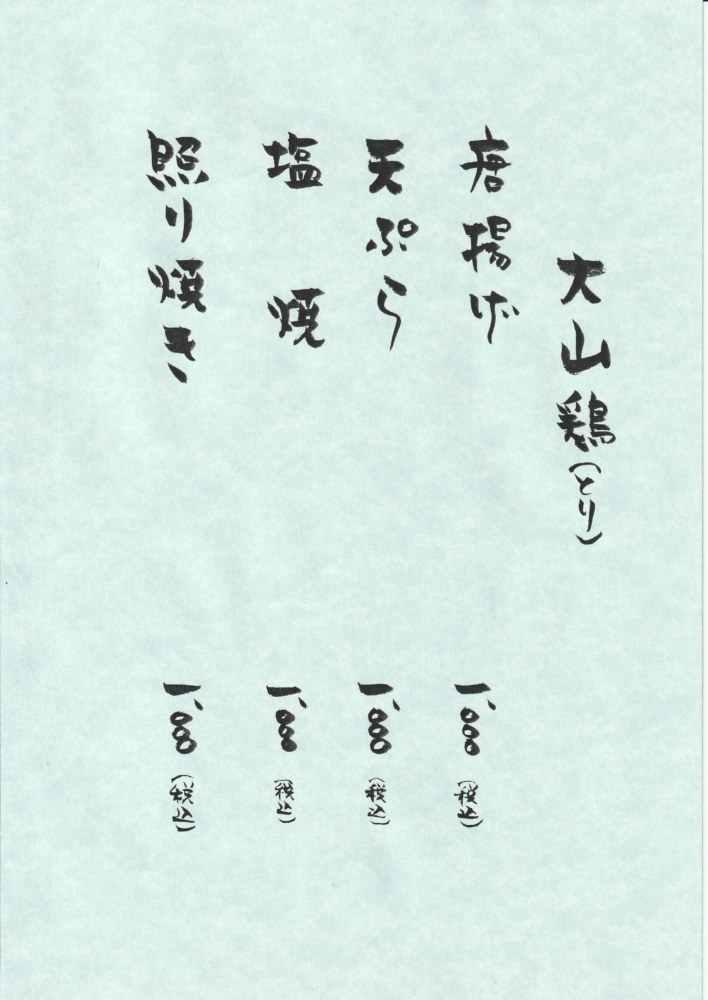 大山鶏(とり)
唐揚げ 一、〇〇〇(税込)
天ぷら 一、〇〇〇(税込)
塩焼 一、〇〇〇(税込)
照り焼き 一、〇〇〇(税込)